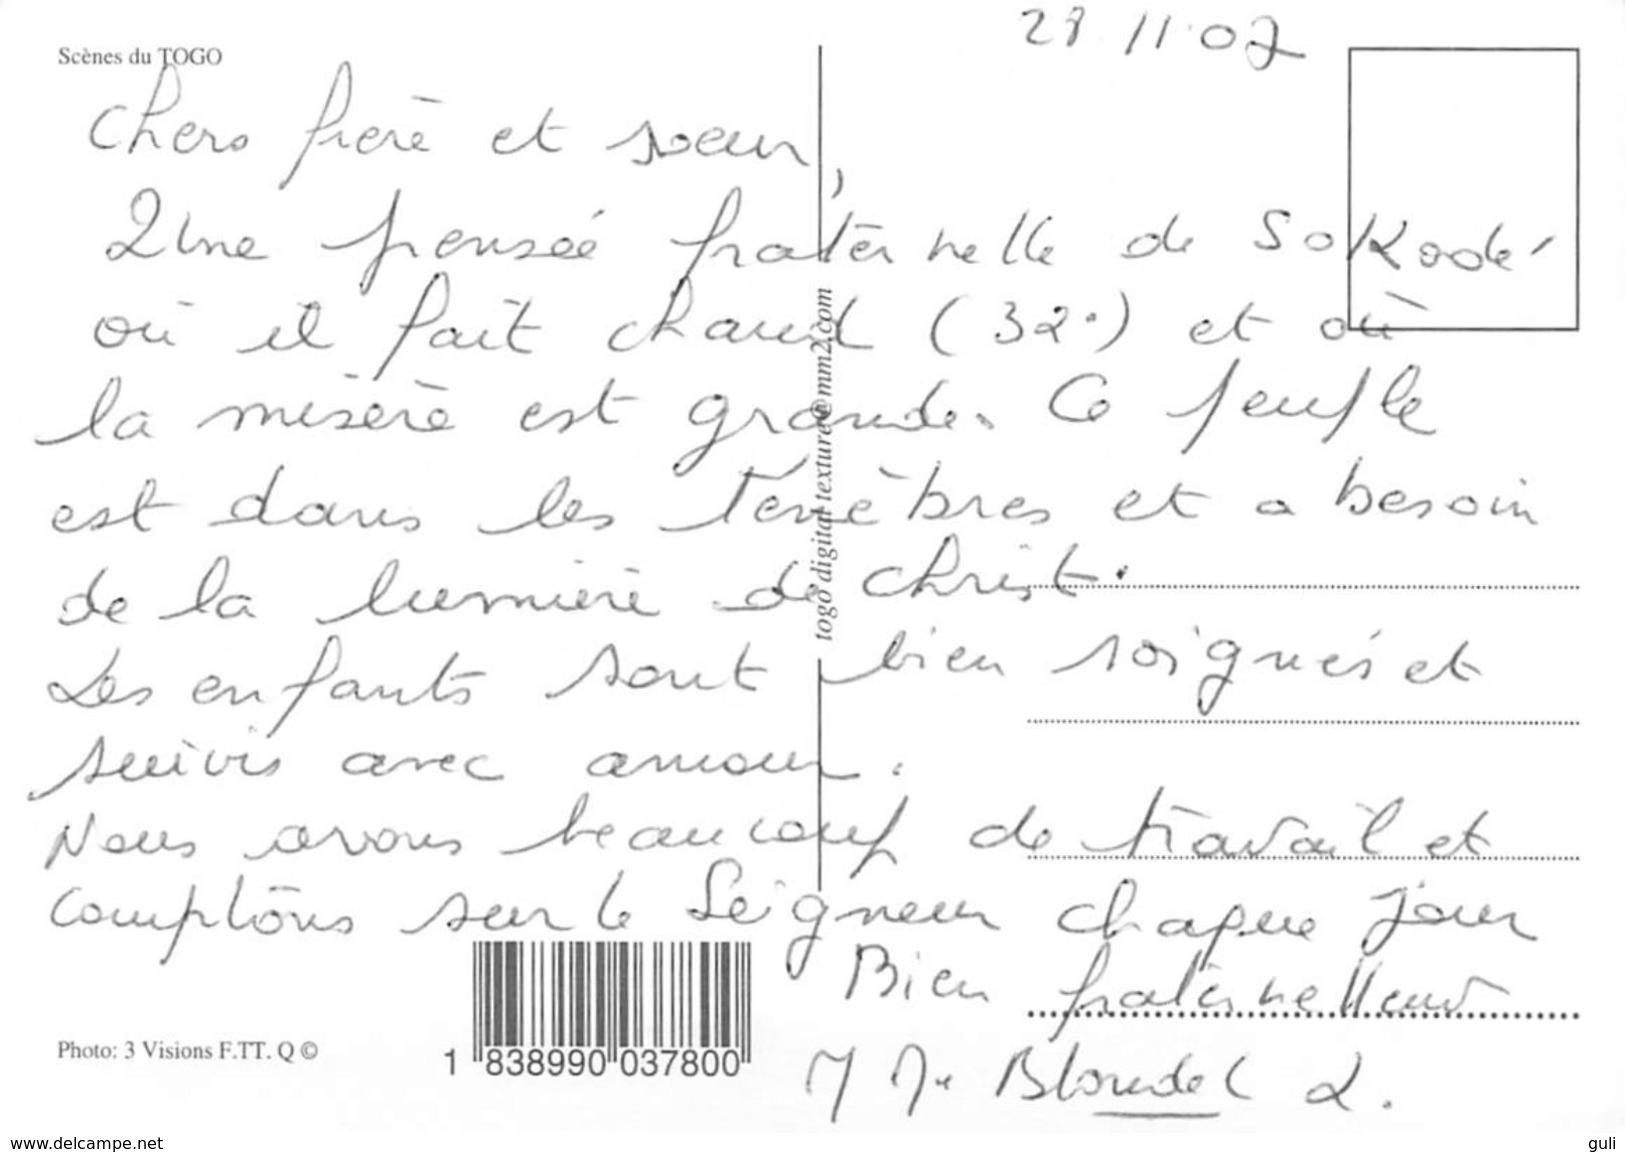 28.11.07
Scènes du TOGO
Chers frère et soeur,
Une pensée fraternelle de Sokodé
où il fait chaud (32°) et où
la misère est grande. Ce peuple
est dans les Ténèbres et a besoin
de la lumière de Christ.
Les enfants sont bien soignés et
suivis avec amour.
Nous avons beaucoup de travail et
comptons sur le Seigneur chaque jour
Bien fraternellement
Blondel
togo digital texture@mm2.com
Photo: 3 Visions F.TT. Q ©
1 838990 037800
www.delcampe.net
guli